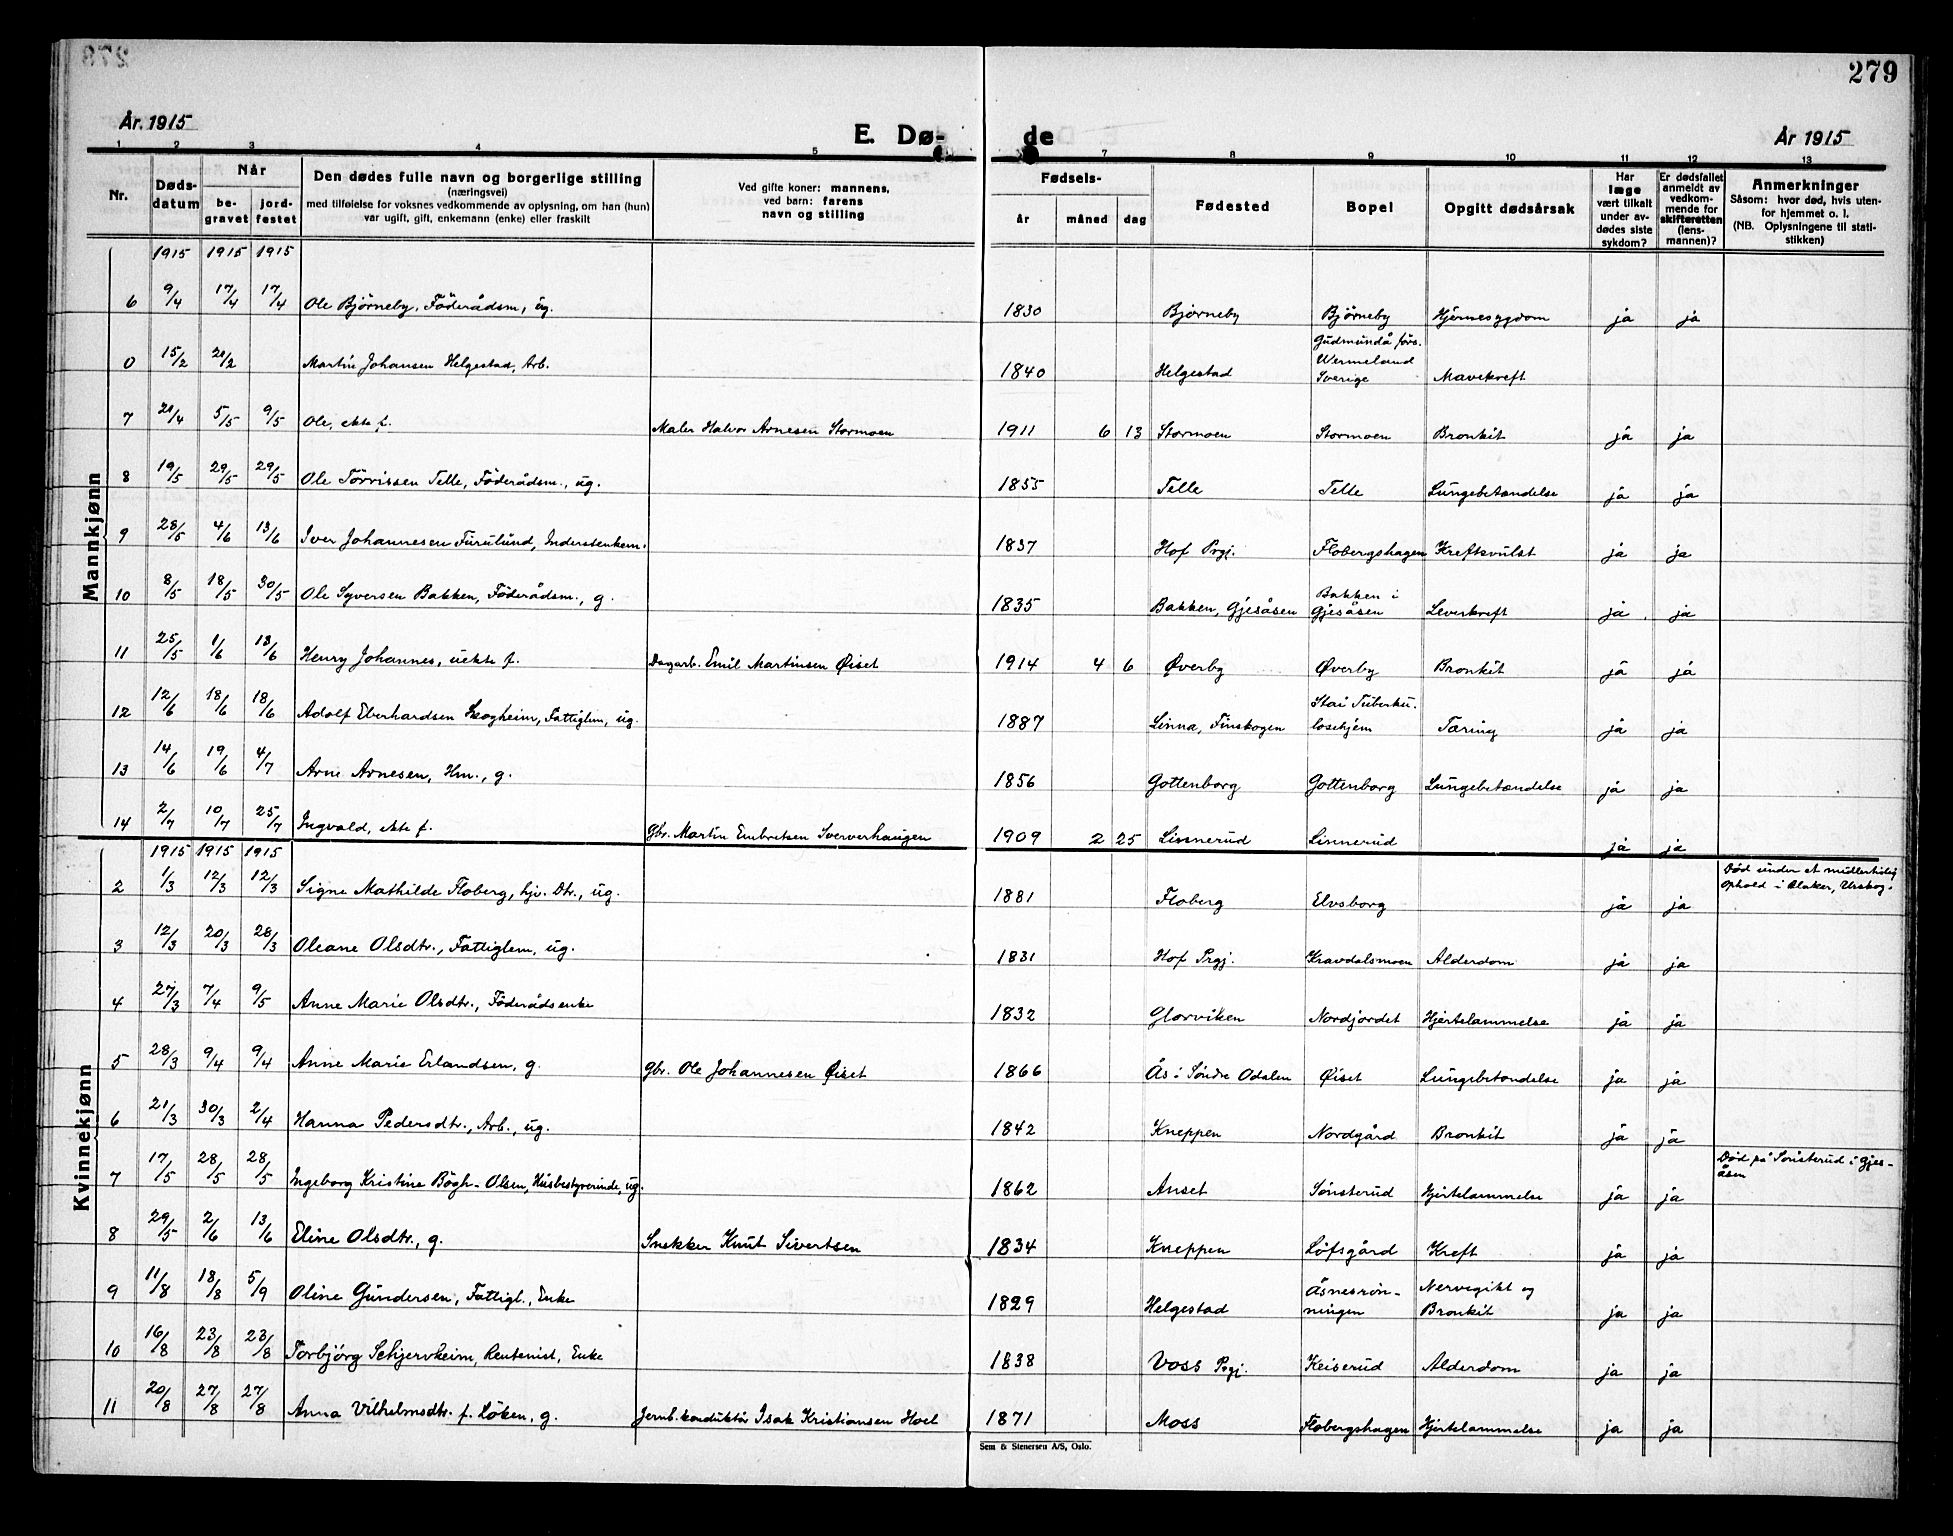 279
År. 1915
E. Dø-
de
År 1915
1 2 3 4 5 7 8 9 10 11 12 13
Nr.
Døds-
datum
Når
be-
gravet
jord-
festet
Den dødes fulle navn og borgerlige stilling
(næringsvei)
med tilføielse for voksnes vedkommende av oplysning, om han (hun)
var ugift, gift, enkemann (enke) eller fraskilt
Ved gifte koner: mannens,
ved barn: farens
navn og stilling
Fødsels-
år måned dag
Fødested
Bopel
Opgitt dødsårsak
Har
læge
vært tilkalt
under av-
dødes siste
sykdom?
Er dødsfallet
anmeldt av
vedkom-
mende for
skifteretten
(lens-
mannen)?
Anmerkninger
Såsom: hvor død, hvis uten-
for hjemmet o. l.
(NB. Oplysningene til stati-
stikken)
Mannkjønn
1915 1915 1915
6 9/4 17/4 17/4 Ole Bjørneby, Föderådsm, ug. 1830 Bjørneby Bjørneby Hjernesygdom ja ja
0 15/2 21/2 Martin Johansen Helgestad, Arb. 1840 Helgestad Gudmundå förs. Wermeland Sverige Mavekreft
7 21/4 5/5 9/5 Ole, ekte f. Maler Halvor Arnesen Stormoen 1911 6 13 Stormoen Stormoen Bronkit ja ja
8 19/5 29/5 29/5 Ole Torrissen Telle, Föderådsm., ug. 1855 Telle Telle Lungebetændelse ja ja
9 28/5 4/6 13/6 Iver Johannesen Furulund, Inderstenkem. 1837 Hof Prgj. Flobergshagen Kreftsvulst ja ja
10 8/5 18/5 30/5 Ole Syversen Bakken, Föderådsm., g. 1835 Bakken, Gjesåsen Bakken i Gjesåsen Leverkreft ja ja
11 25/5 1/6 13/6 Henry Johannes, uekte f. Dagarb. Emil Martinsen Øiset 1914 4 6 Øverby Øverby Bronkit ja ja
12 12/6 18/6 18/6 Adolf Eberhardsen Skogheim, Fattiglem, ug. 1887 Linna, Finskogen Stai Tuberku- losehjem Tæring ja ja
13 14/6 19/6 4/7 Arne Arnesen, Hm., g. 1856 Gottenborg Gottenborg Lungebetændelse ja ja
14 2/7 10/7 25/7 Ingvald, ekte f. Gbr. Martin Embretsen Sververhaugen 1909 2 25 Linnerud Linnerud ja ja
Kvinnekjønn
1915 1915 1915
2 1/3 12/3 12/3 Signe Mathilde Floberg, hjv. Dtr., ug. 1881 Floberg Elvsborg ja ja Död under et midlertidig Ophold i Blaker, Urskog.
3 12/3 20/3 28/3 Oleane Olsdtr., Fattiglem, ug. 1831 Hof Prgj. Kravdalsmoen Alderdom ja ja
4 27/3 7/4 9/5 Anne Marie Olsdtr., Föderådsenke 1832 Glorviken Nordjordet Hjertelammelse ja ja
5 28/3 9/4 9/4 Anne Marie Erlandsen, g. Gbr. Ole Johannesen Øiset 1866 Ås i Söndre Odalen Øiset Lungebetændelse ja ja
6 21/3 30/3 2/4 Hanna Pedersdtr., Arb., ug. 1842 Kneppen Nordgård Bronkit ja ja
7 17/5 28/5 28/5 Ingeborg Kristine Bögh-Olsen, Husbestyrerinde, ug. 1862 Anset Sönsterud Hjertelammelse ja ja Död på Sönsterud i Gjes- åsen
8 29/5 2/6 13/6 Eline Olsdtr., g. Snekker Knut Sivertsen 1834 Kneppen Löfsgård Kreft ja ja
9 11/8 18/8 5/9 Oline Gundersen, Fattigl., Enke 1829 Helgestad Åsnesrön- ningen Nervegikt og Bronkit ja ja
10 16/8 23/8 23/8 Torbjörg Schjerveheim, Rentenist, Enke 1838 Voss Prgj. Keiserud Alderdom ja ja
11 20/8 27/8 27/8 Anna Vilhelmsdtr. f. Höken, g. Jernb.konduktör Isak Kristiansen Hoel 1871 Moss Flobergshagen Hjertelammelse ja ja
Sem & Stenersen A/S, Oslo.